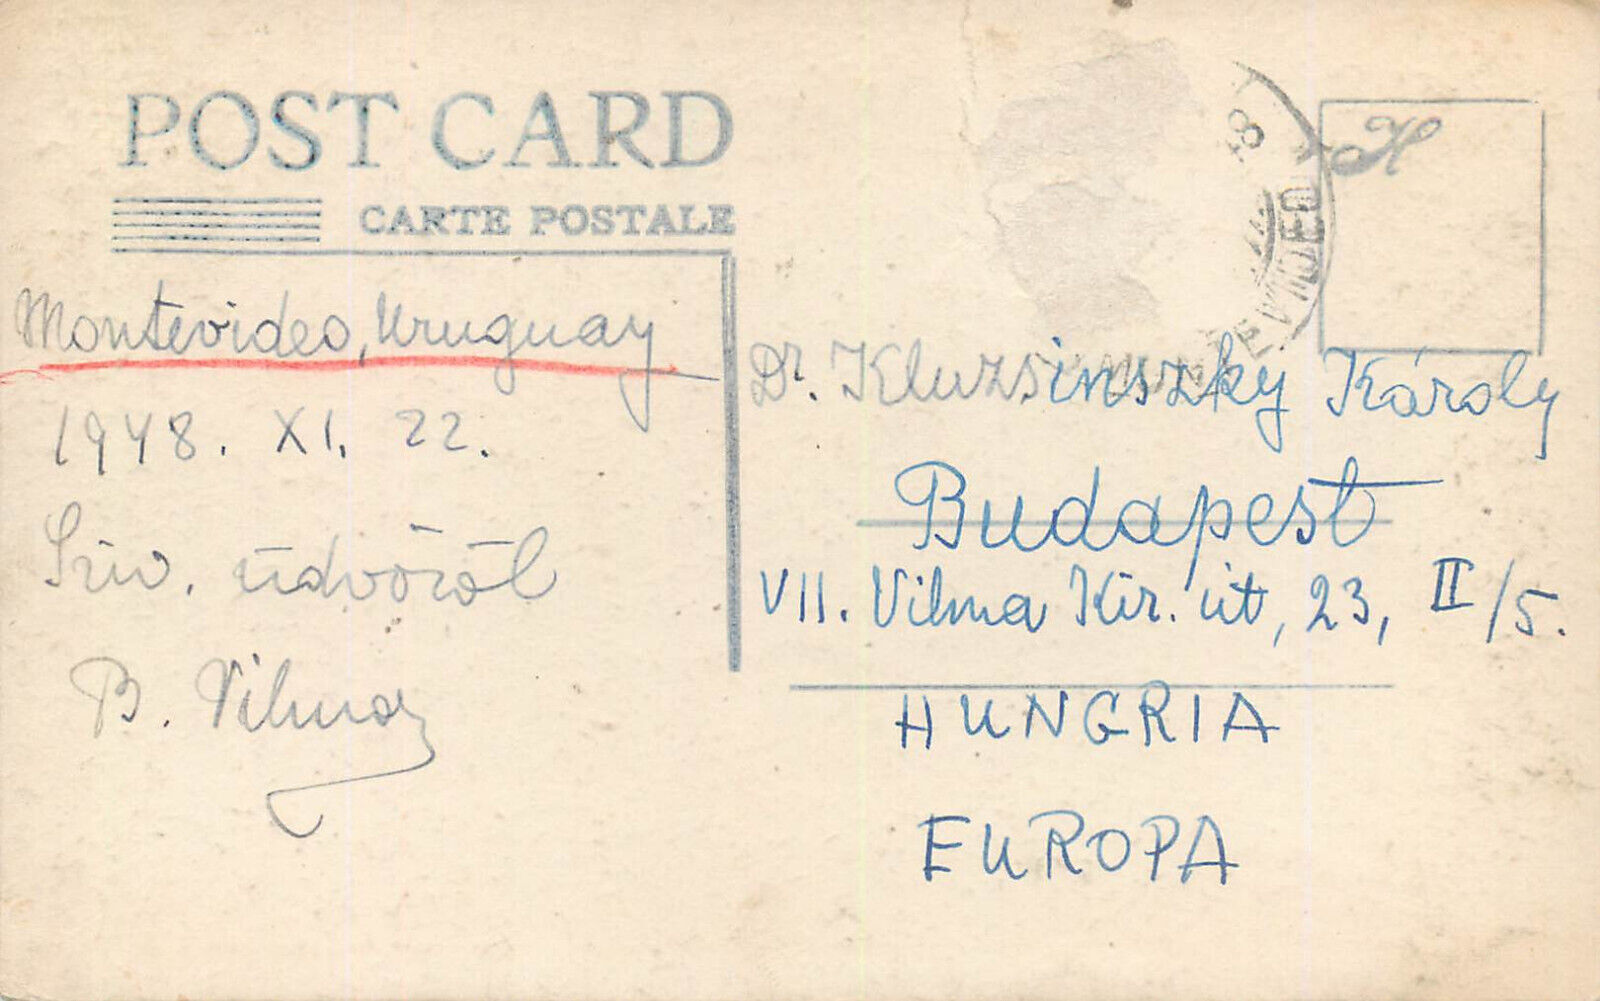 POST CARD
CARTE POSTALE
Montevideo, Uruguay
1948. XI. 22.
Sziv. üdvözöl
B. Vilmos
48
MONTEVIDEO
H
Dr. Kluzsinszky Károly
Budapest
VII. Vilma Kir. út, 23, II/5.
HUNGRIA
EUROPA